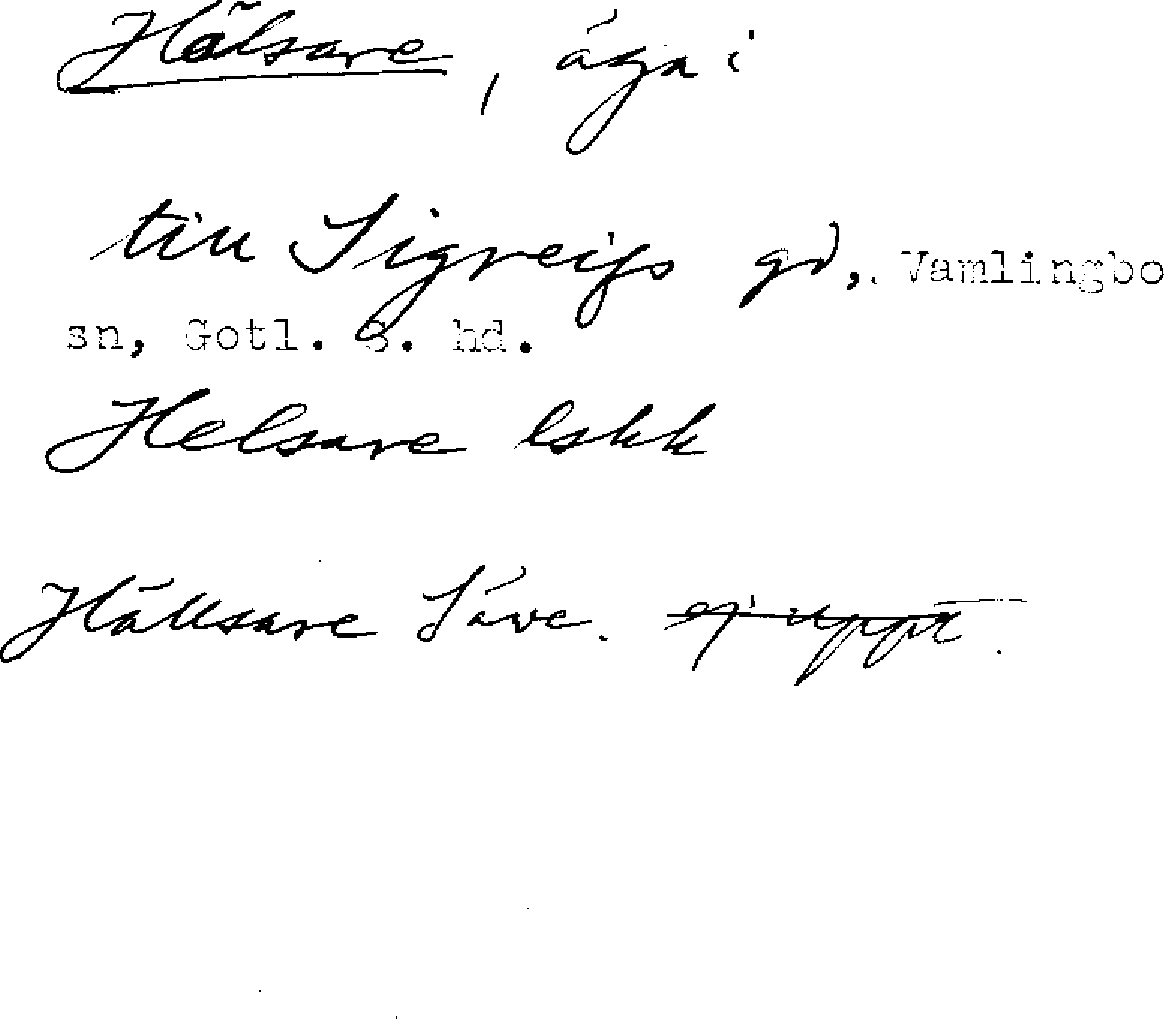 Hälsare, äga i
till Sigreifs gd, Vamlingbo
sn, Gotl. S. hd.
Helsare lskk
Hällsare Säve. ej uppt.